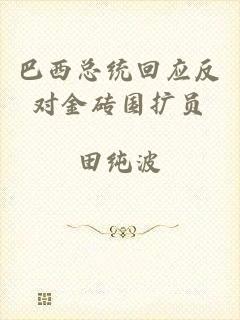 巴西总统回应反
对金砖国扩员
田纯波